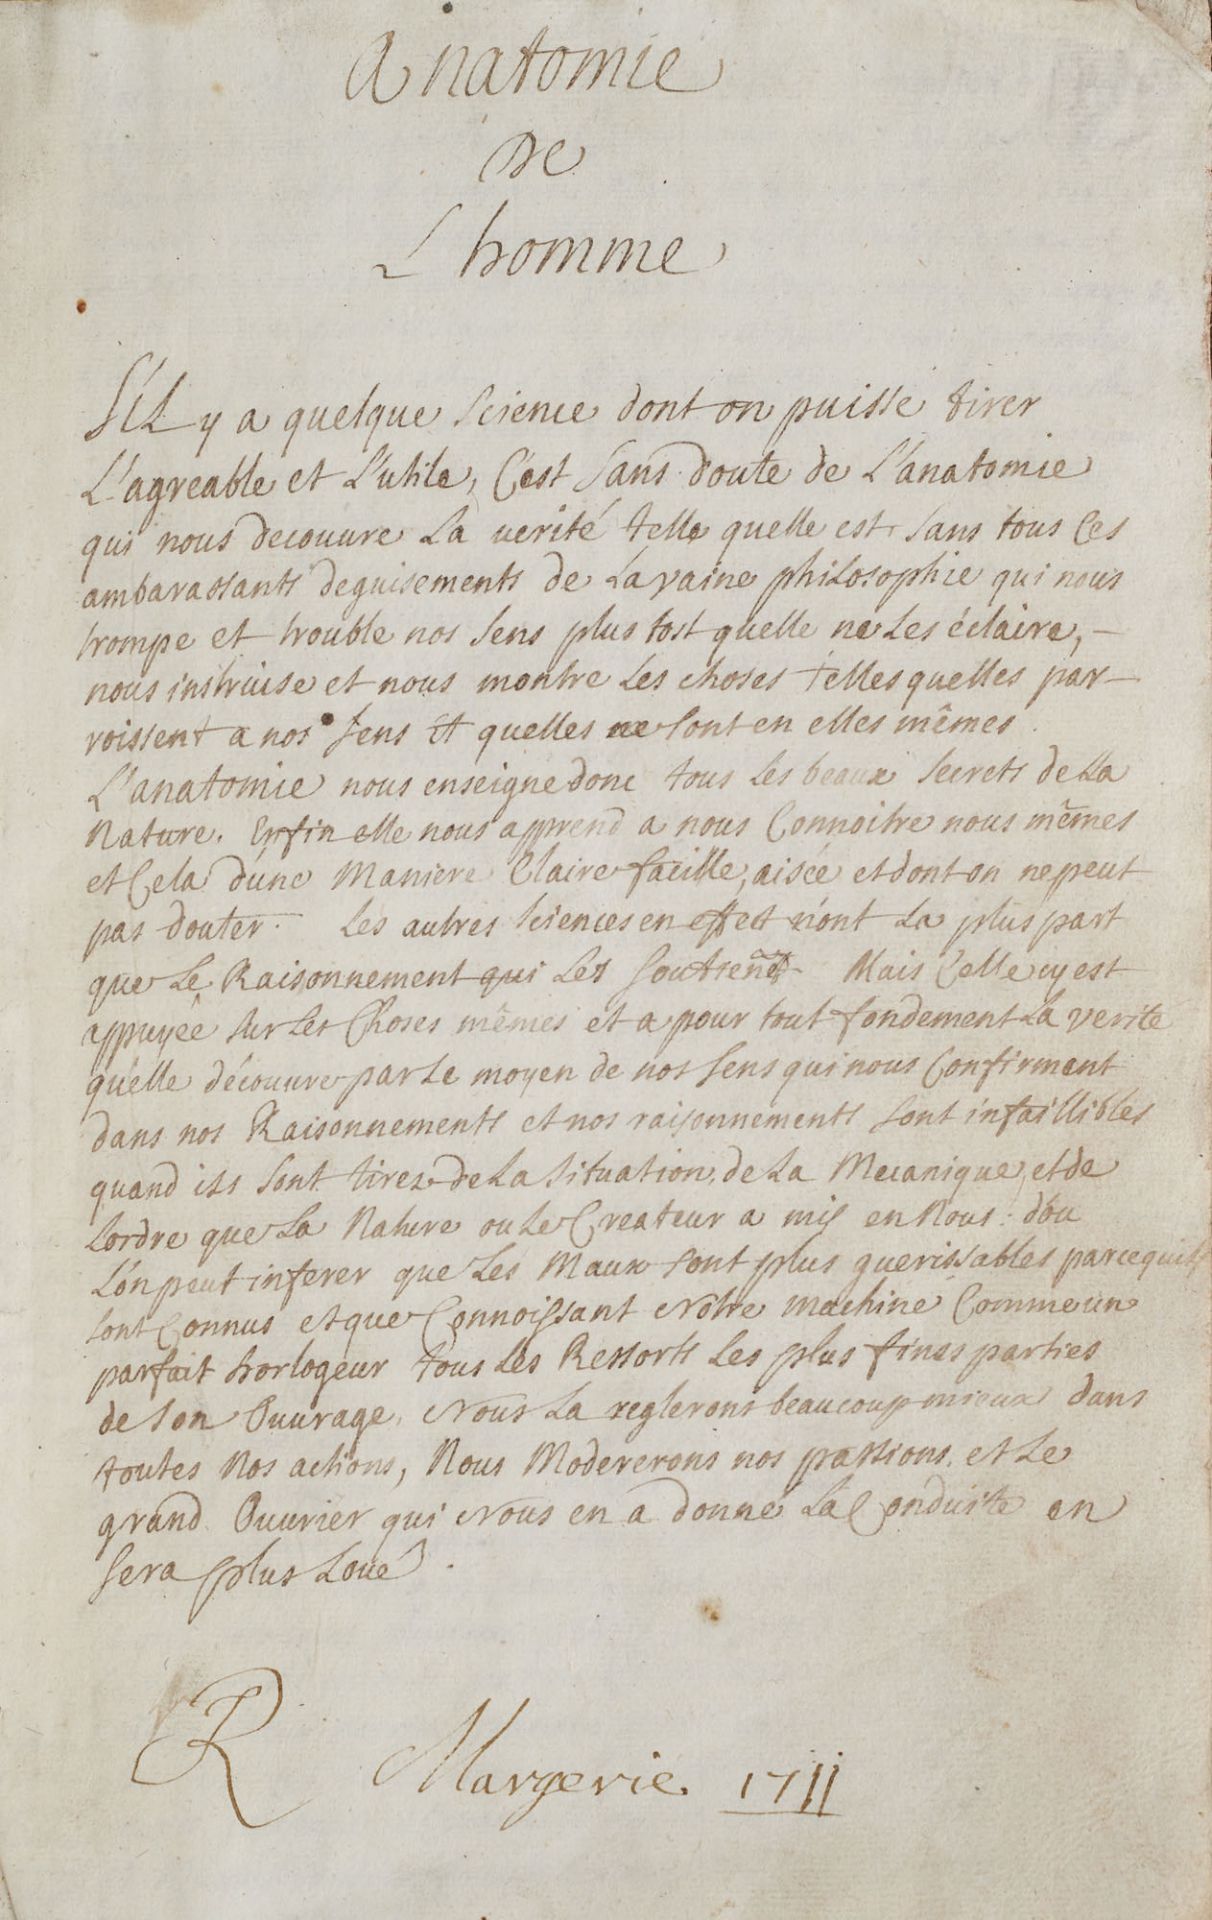 Anatomie
De
L'homme
S'il y a quelque Science dont on puisse tirer
L'agreable et L'utile, C'est Sans doute de L'anatomie
qui nous decouvre La verité telle quelle est Sans tous Ces
ambarassants deguisements de La vaine philosophie qui nous
trompe et trouble nos Sens plus tost quelle ne Les éclaire, –
nous instruise et nous montre Les choses telles quelles par–
roissent a nos Sens et quelles ne Sont en elles mêmes.
L'anatomie nous enseigne donc tous Les beaux Secrets de La
Nature. Enfin elle nous apprend a nous Connoitre nous mêmes
et Cela d'une Maniere Claire facille, aisée et dont on ne peut
pas douter. Les autres Sciences en effect n'ont La plus part
que Le Raisonnement qui Les Mais Celle cy est
appuyée sur Les Choses mêmes et a pour tout fondement La verite
qu'elle découvre par Le moyen de nos Sens qui nous Confirment
dans nos Raisonnements et nos raisonnements Sont infaillibles
quand ils Sont tirez de La Situation, de La Mecanique, et de
Lordre que La Nature ou Le Createur a mis en Nous: d'ou
L'on peut inferer que Les Maux Sont plus guerissables parcequils
Sont Connus et que Connoissant Nôtre machine Comme un
parfait horlogeur tous Les Ressorts Les plus fines parties
de Son Ouvrage, Nous La reglerons beaucoup mieux dans
toutes Nos actions, Nous Modererons nos passions, et Le
grand Ouvrier qui Nous en a donné La Conduite en
Sera plus Loué.
R Margerie 1711